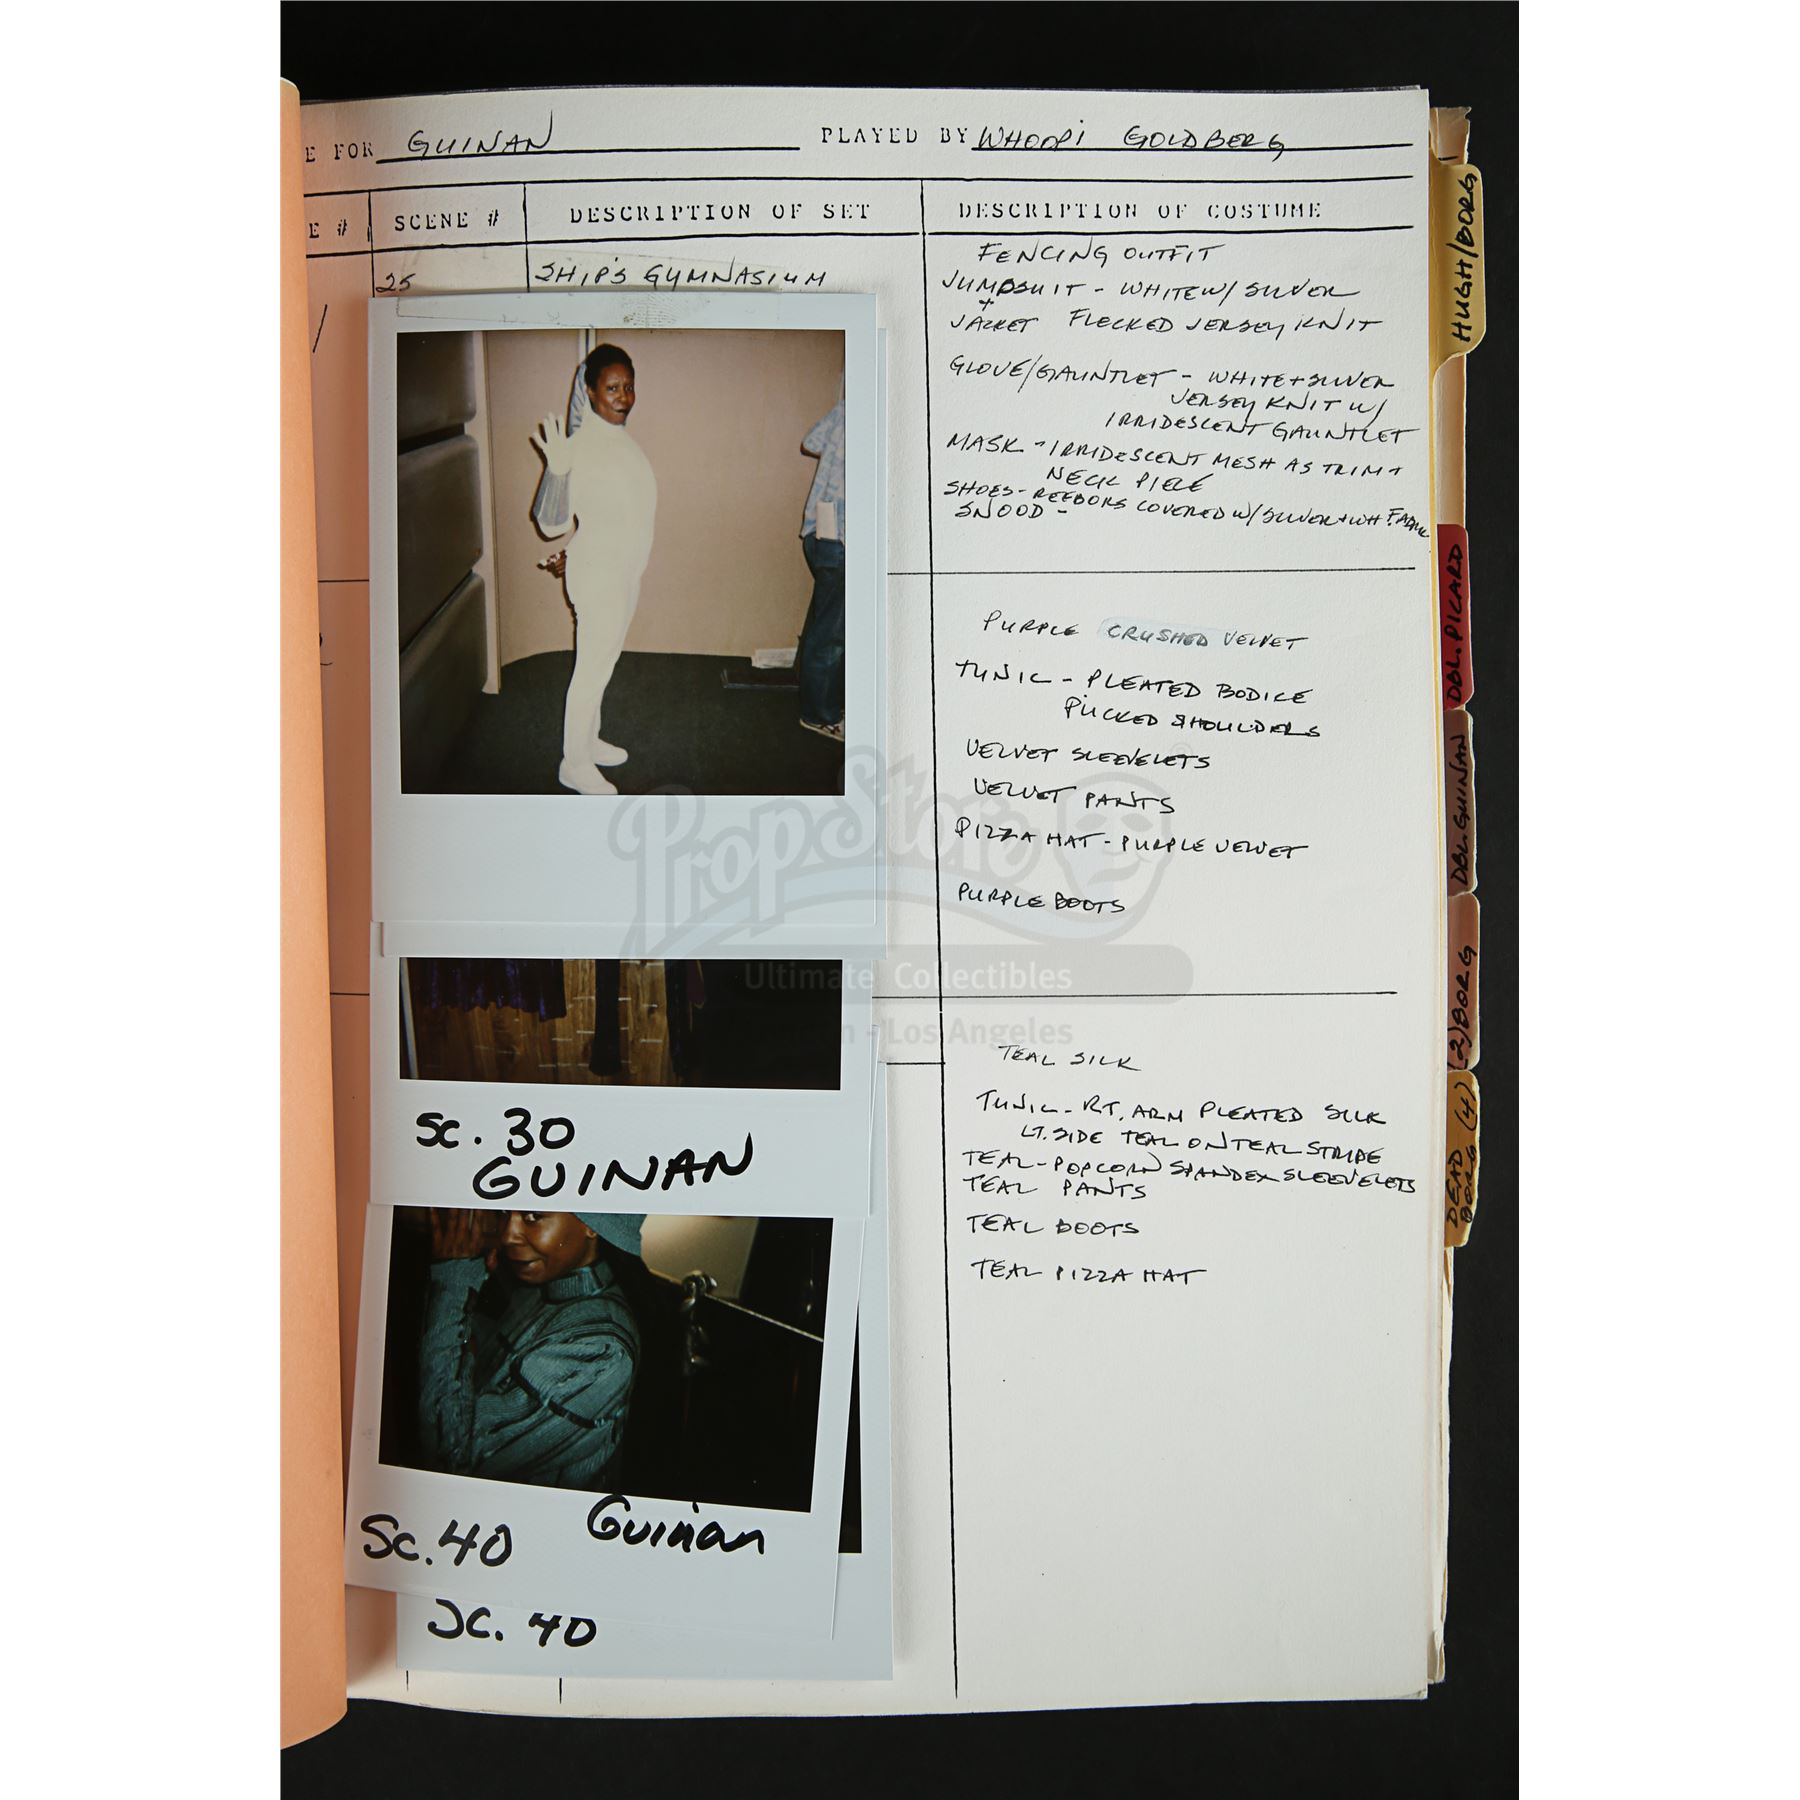 E FOR GUINAN PLAYED BY WHOOPI GOLDBERG
E # SCENE # DESCRIPTION OF SET DESCRIPTION OF COSTUME
25 SHIP'S GYMNASIUM
FENCING OUTFIT
JUMPSUIT - WHITE W/ SILVER
+
JACKET FLECKED JERSEY KNIT
GLOVE/GAUNTLET - WHITE + SILVER
JERSEY KNIT W/
IRRIDESCENT GAUNTLET
MASK - IRRIDESCENT MESH AS TRIM +
NECK PIECE
SHOES - REEBOKS COVERED W/ SILVER + WH FABRIC
SNOOD -
PURPLE CRUSHED VELVET
TUNIC - PLEATED BODICE
PUCKED SHOULDERS
VELVET SLEEVELETS
VELVET PANTS
PIZZA HAT - PURPLE VELVET
PURPLE BOOTS
TEAL SILK
TUNIC - RT. ARM PLEATED SILK
LT. SIDE TEAL ON TEAL STRIPE
TEAL - POPCORN SPANDEX SLEEVELETS
TEAL PANTS
TEAL BOOTS
TEAL PIZZA HAT
SC. 30
GUINAN
Sc. 40 Guinan
SC. 40
HUGH/BORG
DBL. PICARD
DBL. GUINAN
(2) BORG
DEAD (4)
BORG
PropStore
®
Ultimate Collectibles
n - Los Angeles